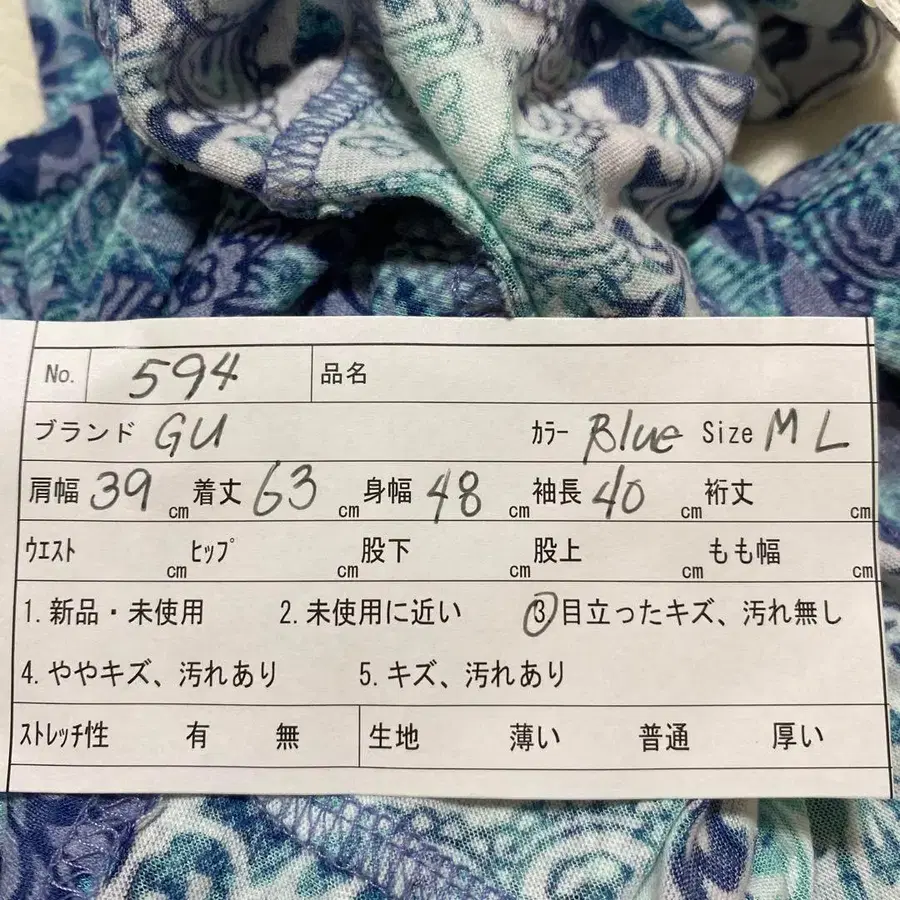 No. 594 品名
ブランド GU カラー Blue Size M L
肩幅 39 cm 着丈 63 cm 身幅 48 cm 袖長 40 cm 裄丈 cm
ウエスト cm ヒップ cm 股下 cm 股上 cm もも幅 cm
1. 新品・未使用 2. 未使用に近い ③目立ったキズ、汚れ無し
4. ややキズ、汚れあり 5. キズ、汚れあり
ストレッチ性 有 無 生地 薄い 普通 厚い